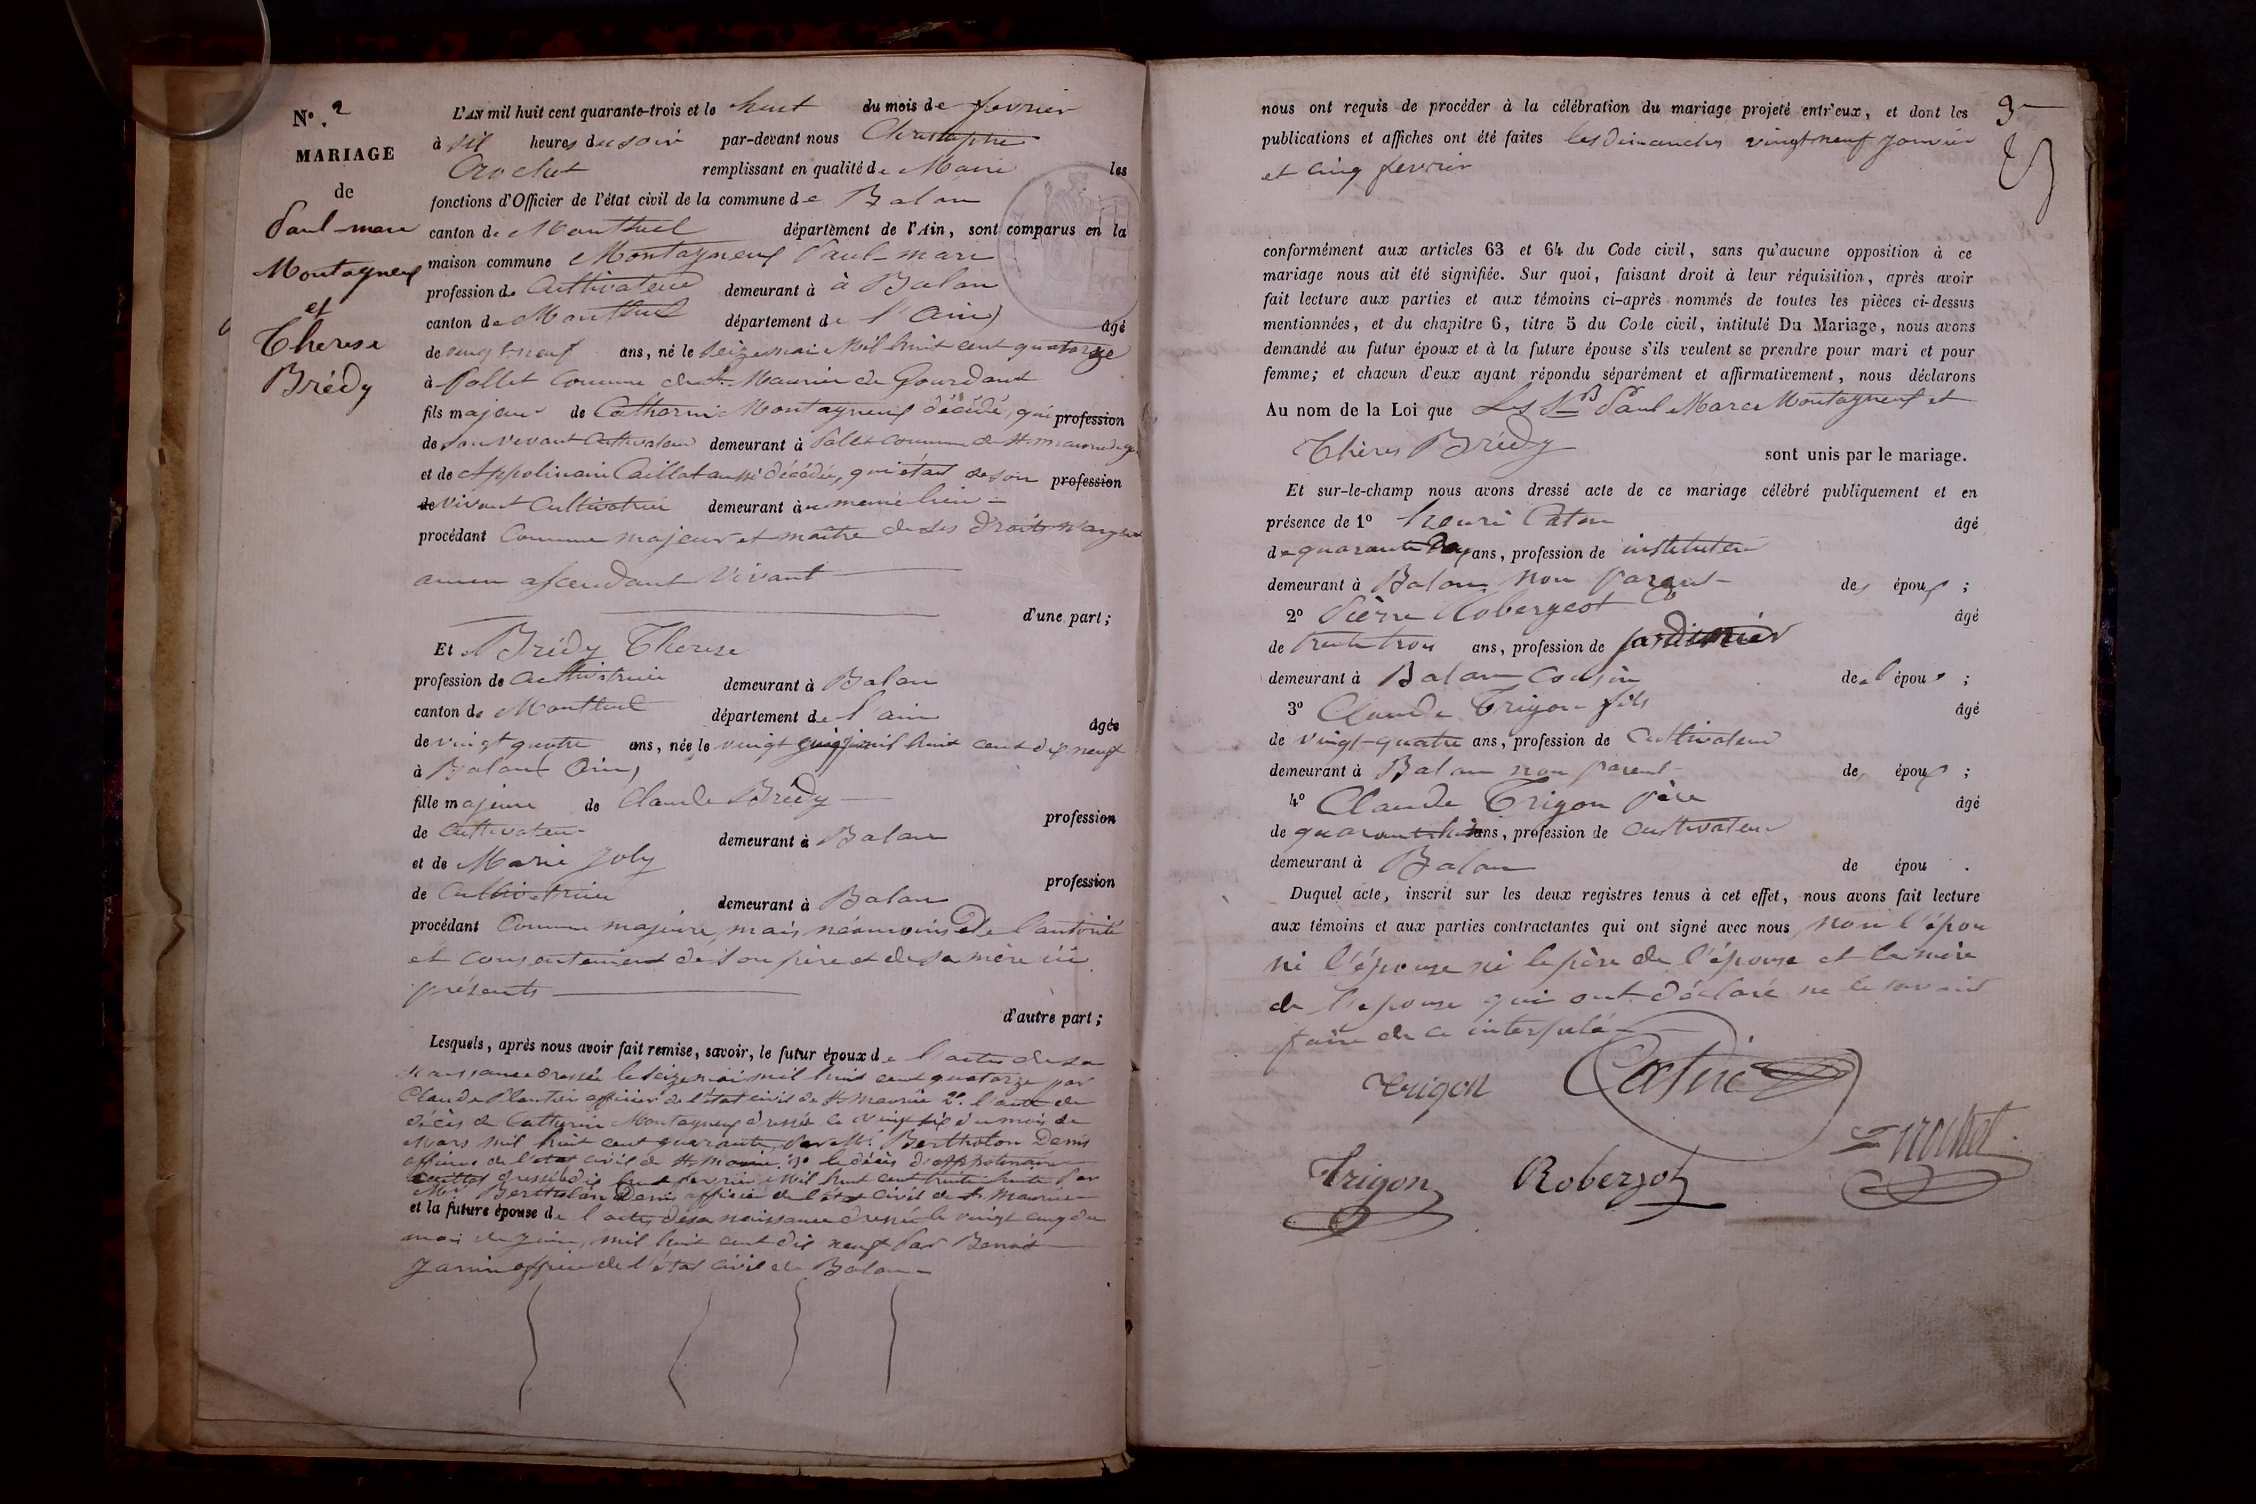 N°. 2
MARIAGE
de
Paul-marc
Montagneux
et
Therese
Brédy
L'AN mil huit cent quarante-trois et le huit du mois de fevrier
à six heures du soir par-devant nous Christophe
Crochet remplissant en qualité de Maire les
fonctions d'Officier de l'état civil de la commune de Balan
canton de Montluel département de l'Ain, sont comparus en la
maison commune Montagneux Paul-marc
profession de Cultivateur demeurant à à Balan
canton de Montluel département de l'Ain) âgé
de vingt-neuf ans, né le seize mai mil huit cent quatorze
à Pollet Commune de St. Maurice de Gourdant
fils majeur de Catherin Montagneux décédé, qui profession
de son vivant Cultivateur demeurant à Pollet Commune de St. maurice de
et de Appolinaire Caillat aussi décédée, qui était de son profession
de vivant Cultivatrice demeurant au même lieu
procédant Comme majeur et maître de ses droits n'ayant
aucun ascendant vivant
d'une part;
Et Brédy Therese
profession de Cultivatrice demeurant à Balan
canton de Montluel département de l'ain âgée
de vingt quatre ans, née le vingt cinq juin mil huit cent dix neuf
à Balan (Ain)
fille majeure de Claude Brédy
profession
de Cultivateur demeurant à Balan
et de Marie Joly
profession
de Cultivatrice demeurant à Balan
procédant Comme majeure, mais néanmoins de l'autorité
et consentement de son père et de sa mère ici
présents
d'autre part;
Lesquels, après nous avoir fait remise, savoir, le futur époux de l'acte de sa
naissance dressé le seize mai mil huit cent quatorze par
Claude Plantier officier de l'état civil de St. Maurice 2°. l'acte de
décès de Catherin Montagneux dressé le vingt six du mois de
Mars mil huit cent quarante, par Mr. Bertholon Denis
officier de l'état civil de St. Maurice. 3° le décès d'Appolinaire
Caillat dressé le dix huit fevrier mil huit cent trente huit par
Mr. Bertholon Denis officier de l'état civil de St. Maurice
et la future épouse de l'acte de sa naissance dressé le vingt cinq du
mois de juin, mil huit cent dix neuf par Benoit
Janin officier de l'état civil de Balan
3
nous ont requis de procéder à la célébration du mariage projeté entr'eux, et dont les
publications et affiches ont été faites les dimanches vingt neuf janvier
et cinq fevrier
conformément aux articles 63 et 64 du Code civil, sans qu'aucune opposition à ce
mariage nous ait été signifiée. Sur quoi, faisant droit à leur réquisition, après avoir
fait lecture aux parties et aux témoins ci-après nommés de toutes les pièces ci-dessus
mentionnées, et du chapitre 6, titre 5 du Code civil, intitulé Du Mariage, nous avons
demandé au futur époux et à la future épouse s'ils veulent se prendre pour mari et pour
femme; et chacun d'eux ayant répondu séparément et affirmativement, nous déclarons
Au nom de la Loi que Les Paul Marc Montagneux et
Thérès Brédy sont unis par le mariage.
Et sur-le-champ nous avons dressé acte de ce mariage célébré publiquement et en
présence de 1° henri Catin âgé
de quarante ans, profession de instituteur
demeurant à Balan non parent des époux ;
2° Pierre Robergeot âgé
de trente trois ans, profession de jardinier
demeurant à Balan Cousin de l'époux ;
3° Claude Trigon fils âgé
de vingt-quatre ans, profession de Cultivateur
demeurant à Balan non parent des époux ;
4° Claude Trigon père âgé
de quarante huit ans, profession de Cultivateur
demeurant à Balan de épou .
Duquel acte, inscrit sur les deux registres tenus à cet effet, nous avons fait lecture
aux témoins et aux parties contractantes qui ont signé avec nous non l'époux
ni l'épouse ni le père de l'épouse et la mère
de l'epouse qui ont déclaré ne le savoir
faire de ce interpelé
Trigon
Trigon Roberjot Crochet